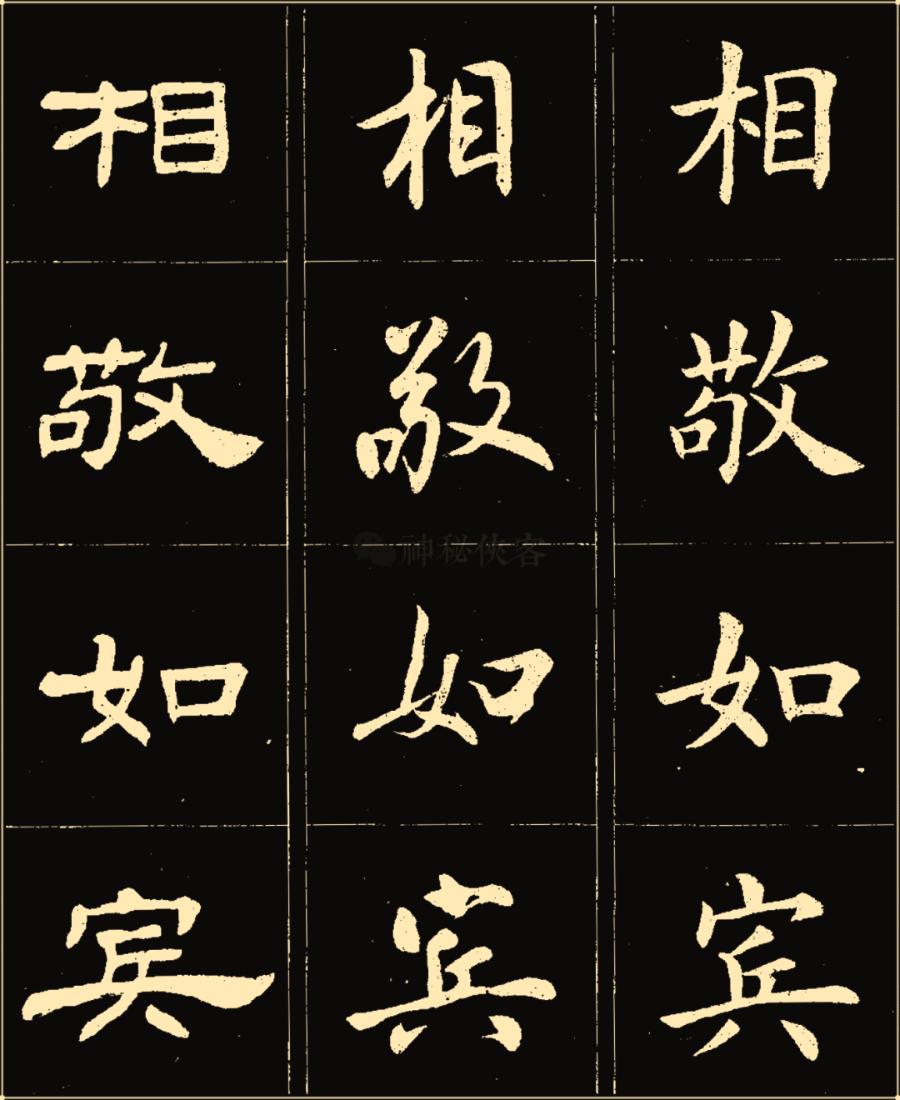 相 相 相
敬 敬 敬
如 如 如
宾 宾 宾
神秘侠客